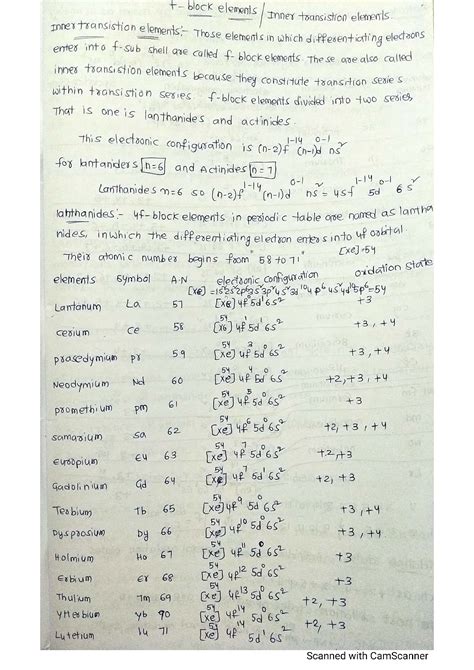 f-block elements / Inner transistion elements
Inner transistion elements:- Those elements in which differentiating electrons
enter into f-sub shell are called f-block elements. These are also called
inner transistion elements because they constitute transition series
within transistion series. f-block elements divided into two series,
That is one is lanthanides and actinides.
This electronic configuration is (n-2)f¹⁻¹⁴ (n-1)d⁰⁻¹ ns²
for lantaniders n=6 and Actinides n=7
Lanthanides n=6 so (n-2)f¹⁻¹⁴ (n-1)d⁰⁻¹ ns² = 4sf¹⁻¹⁴ 5d⁰⁻¹ 6s²
lanthanides:- 4f-block elements in periodic table are named as lantha
nides, in which the differentiating eledron enters into 4f orbital
Their atomic number begins from 58 to 71" [xe]=54
elements symbol A.N electronic configuration oxidation state
[xe]=1s²2s²2p⁶3s²3p⁶4s²3d¹⁰4p⁶4s²4d¹⁰5p⁶=54
Lantanum La 57 [xe] 4f⁰5d¹6s² +3
cerium Ce 58 [xe]⁵⁴ 4f¹5d¹6s² +3, +4
prasedymium pr 59 [xe]⁵⁴ 4f³5d⁰6s² +3, +4
Neodymium Nd 60 [xe]⁵⁴ 4f⁴5d⁰6s² +2, +3, +4
promethium pm 61 [xe]⁵⁴ 4f⁵5d⁰6s² +3
samarium sa 62 [xe]⁵⁴ 4f⁶5d⁰6s² +2, +3, +4
europium eu 63 [xe]⁵⁴ 4f⁷5d⁰6s² +2,+3
Gadolinium Gd 64 [xe]⁵⁴ 4f⁷5d¹6s² +2, +3
Terbium Tb 65 [xe]⁵⁴ 4f⁹5d⁰6s² +3, +4
Dysprosium Dy 66 [xe]⁵⁴ 4f¹⁰5d⁰6s² +3, +4
Holmium Ho 67 [xe]⁵⁴ 4f¹¹5d⁰6s² +3
Erbium Er 68 [xe]⁵⁴ 4f¹²5d⁰6s² +3
Thulium Tm 69 [xe]⁵⁴ 4f¹³5d⁰6s² +2, +3
Ytterbium Yb 70 [xe]⁵⁴ 4f¹⁴5d⁰6s² +2, +3
Lutetium lu 71 [xe]⁵⁴ 4f¹⁴5d¹6s² +3
Scanned with CamScanner